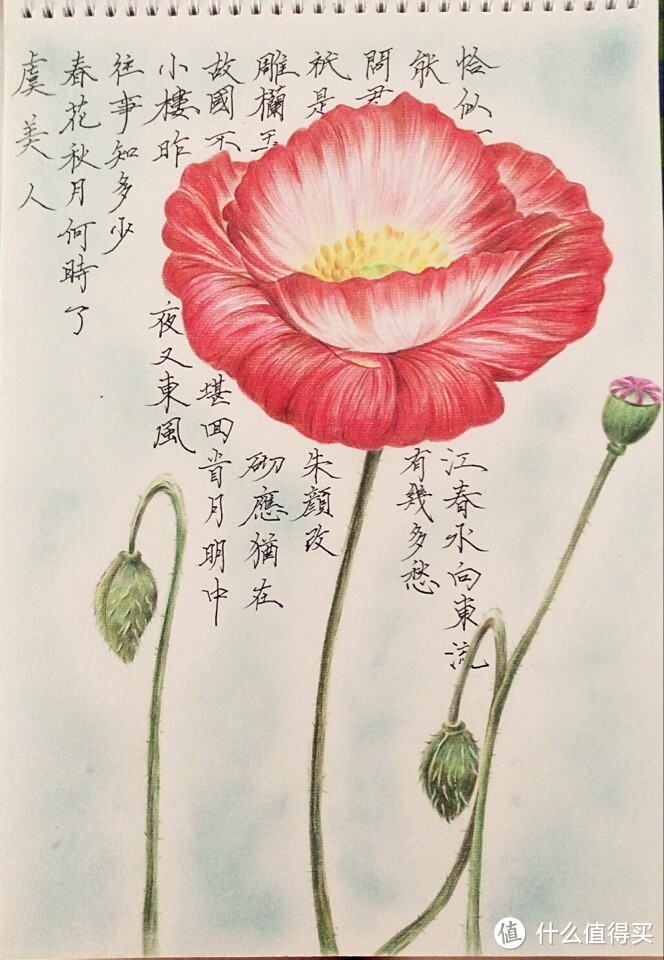 虞美人
春花秋月何時了
往事知多少
小樓昨夜又東風
故國不堪回首月明中
雕欄玉砌應猶在
祇是朱顏改
問君
能有幾多愁
恰似一江春水向東流
值 什么值得买